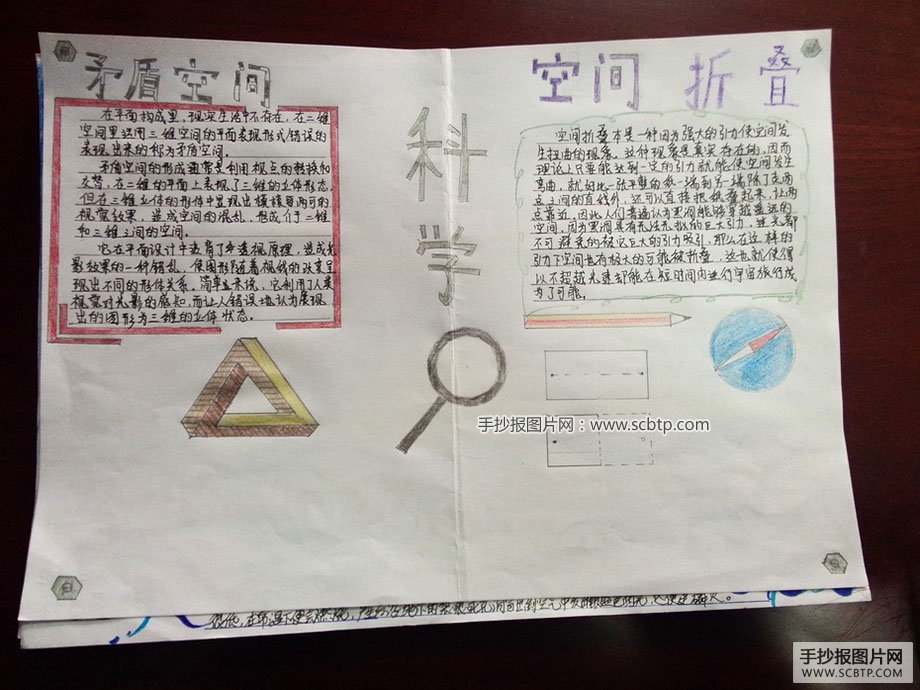 矛盾空间
在平面构成里,现实生活中不存在,在二维
空间里运用三维空间的平面表现形式错误的
表现出来的称为矛盾空间。
矛盾空间的形成通常是利用视点的转换和
交替,在二维的平面上表现了三维的立体形态,
但在三维立体的形体中显现出模棱两可的
视觉效果,造成空间的混乱,形成介于二维
和三维之间的空间。
它在平面设计中违背了透视原理,造成光
影效果的一种错乱,使图形随着视线的改变呈
现出不同的形体关系。简单来说,它利用了人类
视觉对光影的感知,而让人错误地认为展现
出的图形为三维的立体状态。
科学
空间折叠
空间折叠本是一种因为强大的引力使空间发
生扭曲的现象。这种现象是真实存在的,因而
理论上只要能达到一定的引力就能使空间发生
弯曲,就好比一张平整的纸一端到另一端除了走两
点之间的直线外,还可以直接把纸叠起来,让两
点靠近,因此人们普遍认为黑洞能够穿越遥远的
空间,因为黑洞具有无法无抵的巨大引力,连光都
不可避免的被它巨大的引力吸引,那么在这样的
引力下空间也有极大的可能被折叠,这也就使得
以不超越光速却能在短时间内进行宇宙旅行成
为了可能。
手抄报图片网:www.scbtp.com
手抄报图片网
WWW.SCBTP.COM